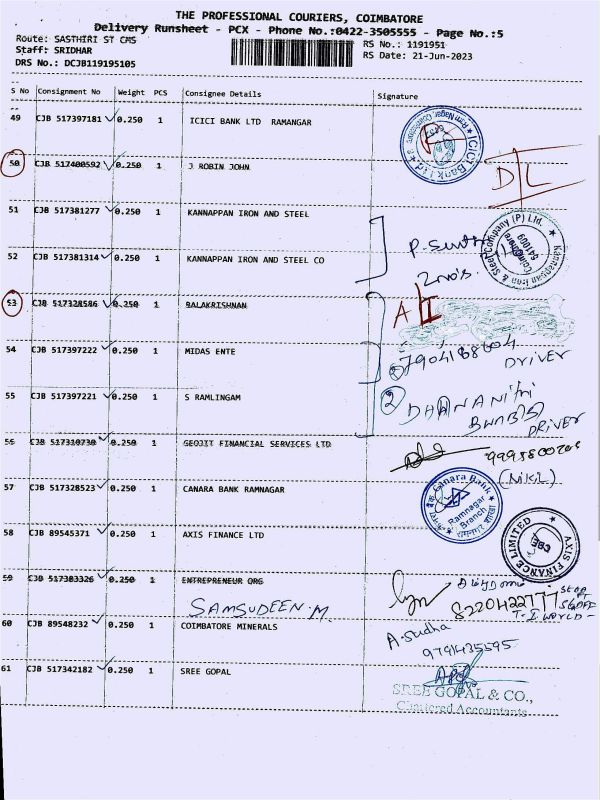 THE PROFESSIONAL COURIERS, COIMBATORE
Delivery Runsheet - PCX - Phone No.:0422-3505555 - Page No.:5
Route: SASTHIRI ST CMS
RS No.: 1191951
Staff: SRIDHAR
RS Date: 21-Jun-2023
DRS No.: DCJB119195105
S No Consignment No Weight PCS Consignee Details Signature
49 CJB 517397181 0.250 1 ICICI BANK LTD RAMANGAR
ICICI Bank Ltd
50 CJB 517400592 0.250 1 J ROBIN JOHN
D/L
51 CJB 517381277 0.250 1 KANNAPPAN IRON AND STEEL
Kannappan Iron & Steel Company (P) Ltd.
Coimbatore
641009
52 CJB 517381314 0.250 1 KANNAPPAN IRON AND STEEL CO
2 nos
53 CJB 517328586 0.250 1 BALAKRISHNAN
54 CJB 517397222 0.250 1 MIDAS ENTE
7904188604
DRIVER
55 CJB 517397221 0.250 1 S RAMLINGAM
2
DRIVER
56 CJB 517310730 0.250 1 GEOJIT FINANCIAL SERVICES LTD
57 CJB 517328523 0.250 1 CANARA BANK RAMNAGAR
Canara Bank
Ramnagar
Branch
58 CJB 89545371 0.250 1 AXIS FINANCE LTD
AXIS FINANCE LIMITED
CBE
59 CJB 517303326 0.250 1 ENTREPRENEUR ORG
SAMSUDEEN.M.
60 CJB 89548232 0.250 1 COIMBATORE MINERALS
A.Sudha
9791435595
61 CJB 517342182 0.250 1 SREE GOPAL
SREE GOPAL & CO.,
Chartered Accountants